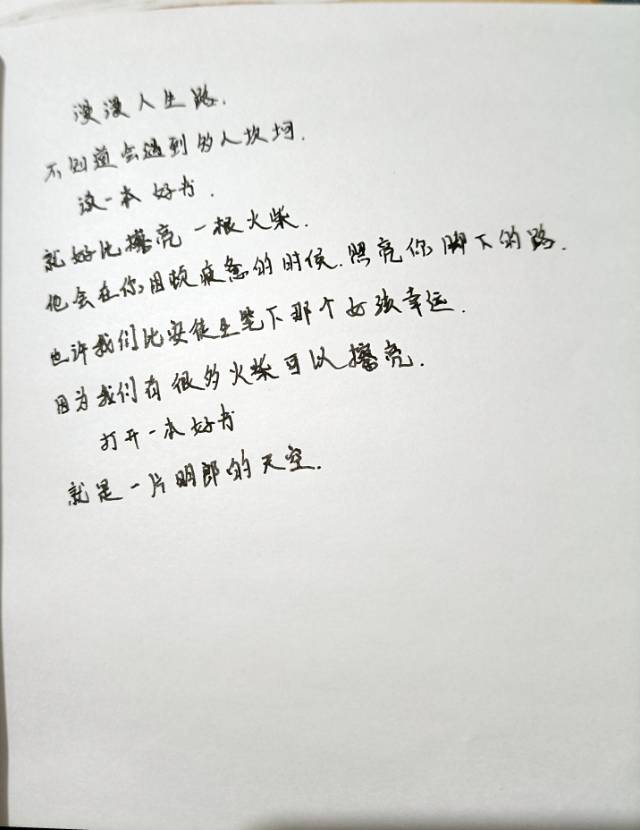 漫漫人生路.
不知道会遇到多人坎坷.
读一本好书.
就好比擦亮一根火柴.
他会在你困顿疲惫的时候.照亮你脚下的路.
也许我们比安徒生笔下那个女孩幸运.
因为我们有很多火柴可以擦亮.
打开一本好书
就是一片明郎的天空.